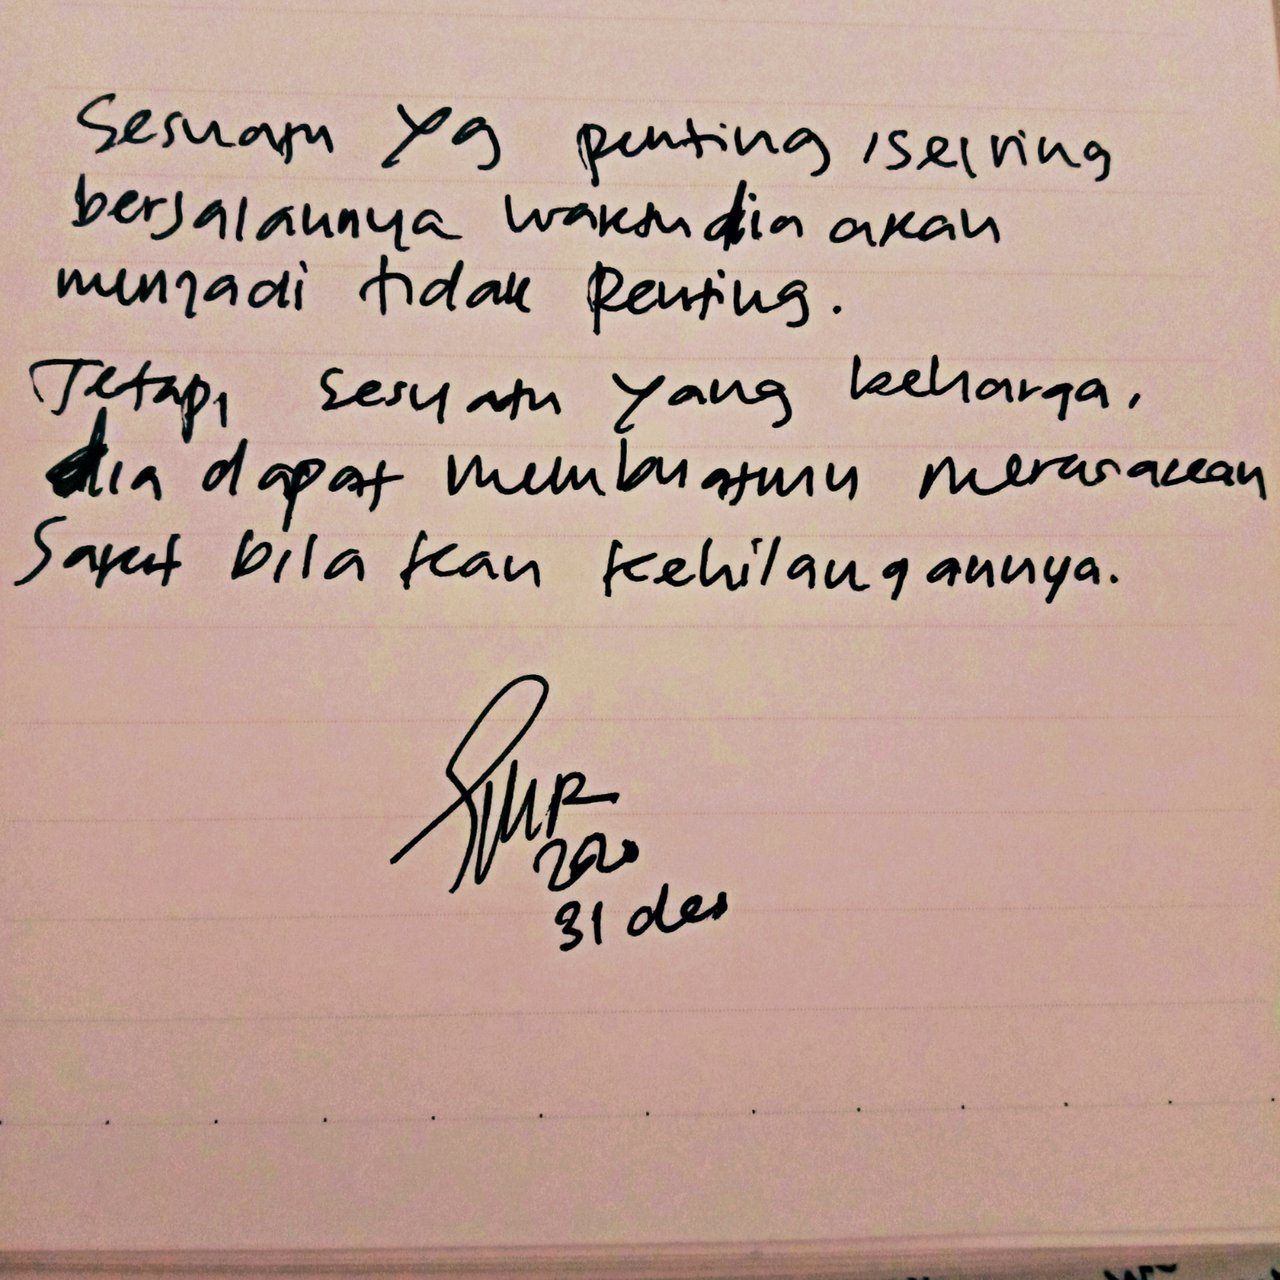 Sesuatu yg penting, seiring
berjalannya waktu dia akan
menjadi tidak penting.
Tetapi sesuatu yang beharga,
dia dapat membuatmu merasakan
sakit bila kau kehilangannya.
2020
31 des